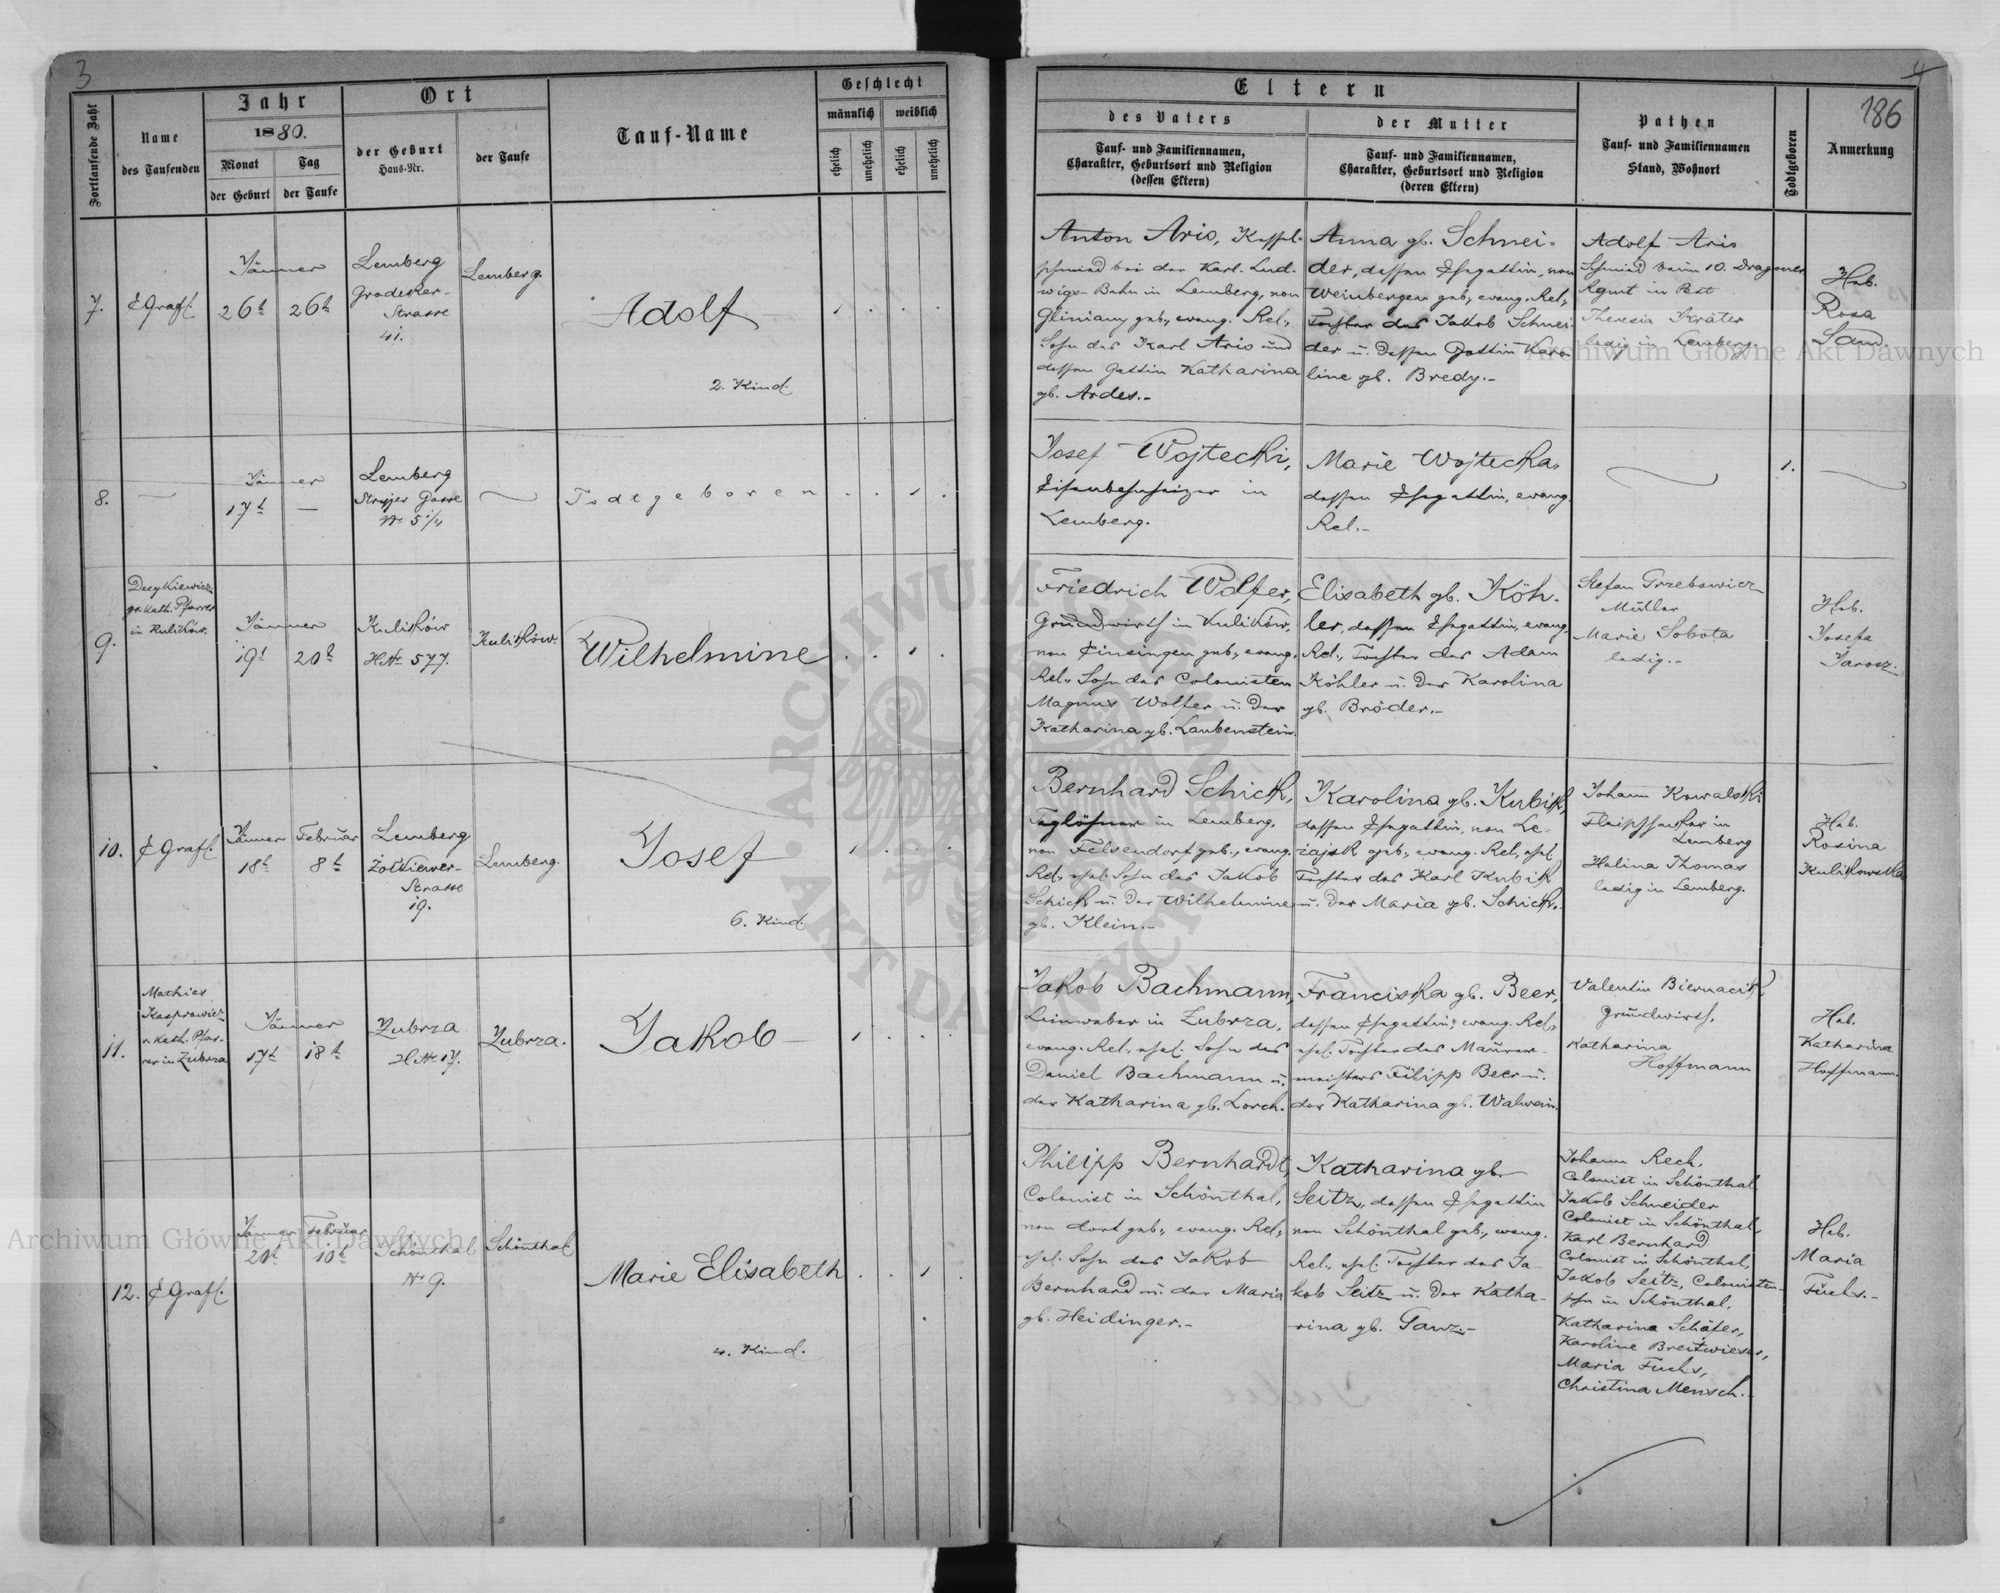 3
4
186
Fortlaufende Zahl
Name
des Taufenden
Jahr
1880.
Monat
Tag
der Geburt
der Taufe
Ort
der Geburt
Haus-Nr.
der Taufe
Tauf-Name
Geschlecht
männlich
weiblich
ehelich
unehelich
ehelich
unehelich
Eltern
des Vaters
Tauf- und Familiennamen,
Charakter, Geburtsort und Religion
(dessen Eltern)
der Mutter
Tauf- und Familiennamen,
Charakter, Geburtsort und Religion
(deren Eltern)
Pathen
Tauf- und Familiennamen
Stand, Wohnort
Todtgeboren
Anmerkung
7.
E Grafl.
Jänner
26t
26t
Lemberg
Grodeker-
Strasse
41.
Lemberg.
Adolf
2. Kind.
Anton Aris, Kessel-
schmied bei der Karl-Lud-
wigs-Bahn in Lemberg, von
Gliniany geb., evang. Rel.,
Sohn des Karl Aris und
dessen Gattin Katharina
gb. Ardes.-
Anna gb. Schnei-
der, dessen Ehegattin, von
Weinbergen geb., evang. Rel.,
Tochter des Jakob Schnei-
der u. dessen Gattin Karo-
line gb. Bredy.-
Adolf Aris
Schmied beim 10. Dragoner
Rgmt in Pest
Theresia Kräter
ledig in Lemberg.
Heb.
Rosa
Sand.
8.
Jänner
17t
Lemberg
Stryjer Gasse
Nr 51/4
Todtgeboren
Josef Wojtecki,
Eisenbahnheizer in
Lemberg.
Marie Wojtecka,
dessen Ehegattin, evang.
Rel.-
1.
9.
gr. kath. Pfarrer
in Kulików.
Jänner
19t
20t
Kulików
H.Nr 577.
Kulików.
Wilhelmine
Friedrich Wolfer,
Grundwirth in Kulików,
von Einsingen geb., evang.
Rel., Sohn des Colonisten
Magnus Wolfer u. der
Katharina gb. Laubenstein.
Elisabeth gb. Köh-
ler, dessen Ehegattin, evang.
Rel., Tochter des Adam
Köhler u. der Karolina
gb. Bröder.-
Stefan Grzebowicz
Müller
Marie Sobota
ledig.-
Heb.
Josefa
Jarosz.
10.
E Grafl.
Jänner
Februar
18t
8t
Lemberg
Żółkiewer-
Strasse
19.
Lemberg.
Josef
6. Kind.
Bernhard Schick,
Taglöhner in Lemberg,
von Felsendorf geb., evang.
Rel., ehel. Sohn des Jakob
Schick u. der Wilhelmine
gb. Klein.-
Karolina gb. Kubik,
dessen Ehegattin, von Le-
zajsk geb., evang. Rel., ehel.
Tochter des Karl Kubik
u. der Maria gb. Schick.-
Johann Kowalski
Fleischhacker in
Lemberg
Halina Thomas
ledig in Lemberg.
Heb.
Rosina
Kulikowska
11.
Mathies
Kasprowicz
r. kath. Pfar-
rer in Zubrza
Jänner
17t
18t
Zubrza
H.Nr 17.
Zubrza.
Jakob
Jakob Bachmann,
Leinweber in Zubrza,
evang. Rel., ehel. Sohn des
Daniel Bachmann u.
der Katharina gb. Lorch.
Franciska gb. Beer,
dessen Ehegattin, evang. Rel.,
ehel. Tochter des Maurer-
meisters Filipp Beer u.
der Katharina gb. Walwein.
Valentin Biernacik
Grundwirth.
Katharina
Hoffmann
Heb.
Katharina
Hoffmann.
12.
E Grafl.
Jänner
Februar
20t
10t
Schönthal
Nr 9.
Schönthal
Marie Elisabeth
4. Kind.
Philipp Bernhardt,
Colonist in Schönthal,
von dort geb., evang. Rel.,
ehel. Sohn des Jakob
Bernhard u. der Maria
gb. Heidinger.-
Katharina gb.
Seitz, dessen Ehegattin
von Schönthal geb., evang.
Rel., ehel. Tochter des Ja-
kob Seitz u. der Katha-
rina gb. Ganz.-
Johann Rech,
Colonist in Schönthal,
Jakob Schneider
Colonist in Schönthal,
Karl Bernhard
Colonist in Schönthal,
Jakob Seitz, Colonisten-
sohn in Schönthal,
Katharina Schäfer,
Karoline Breitwieser,
Maria Fuchs,
Christina Mensch.-
Heb.
Maria
Fuchs.-
Archiwum Główne Akt Dawnych
Archiwum Główne Akt Dawnych
ARCHIWUM GŁÓWNE AKT DAWNYCH